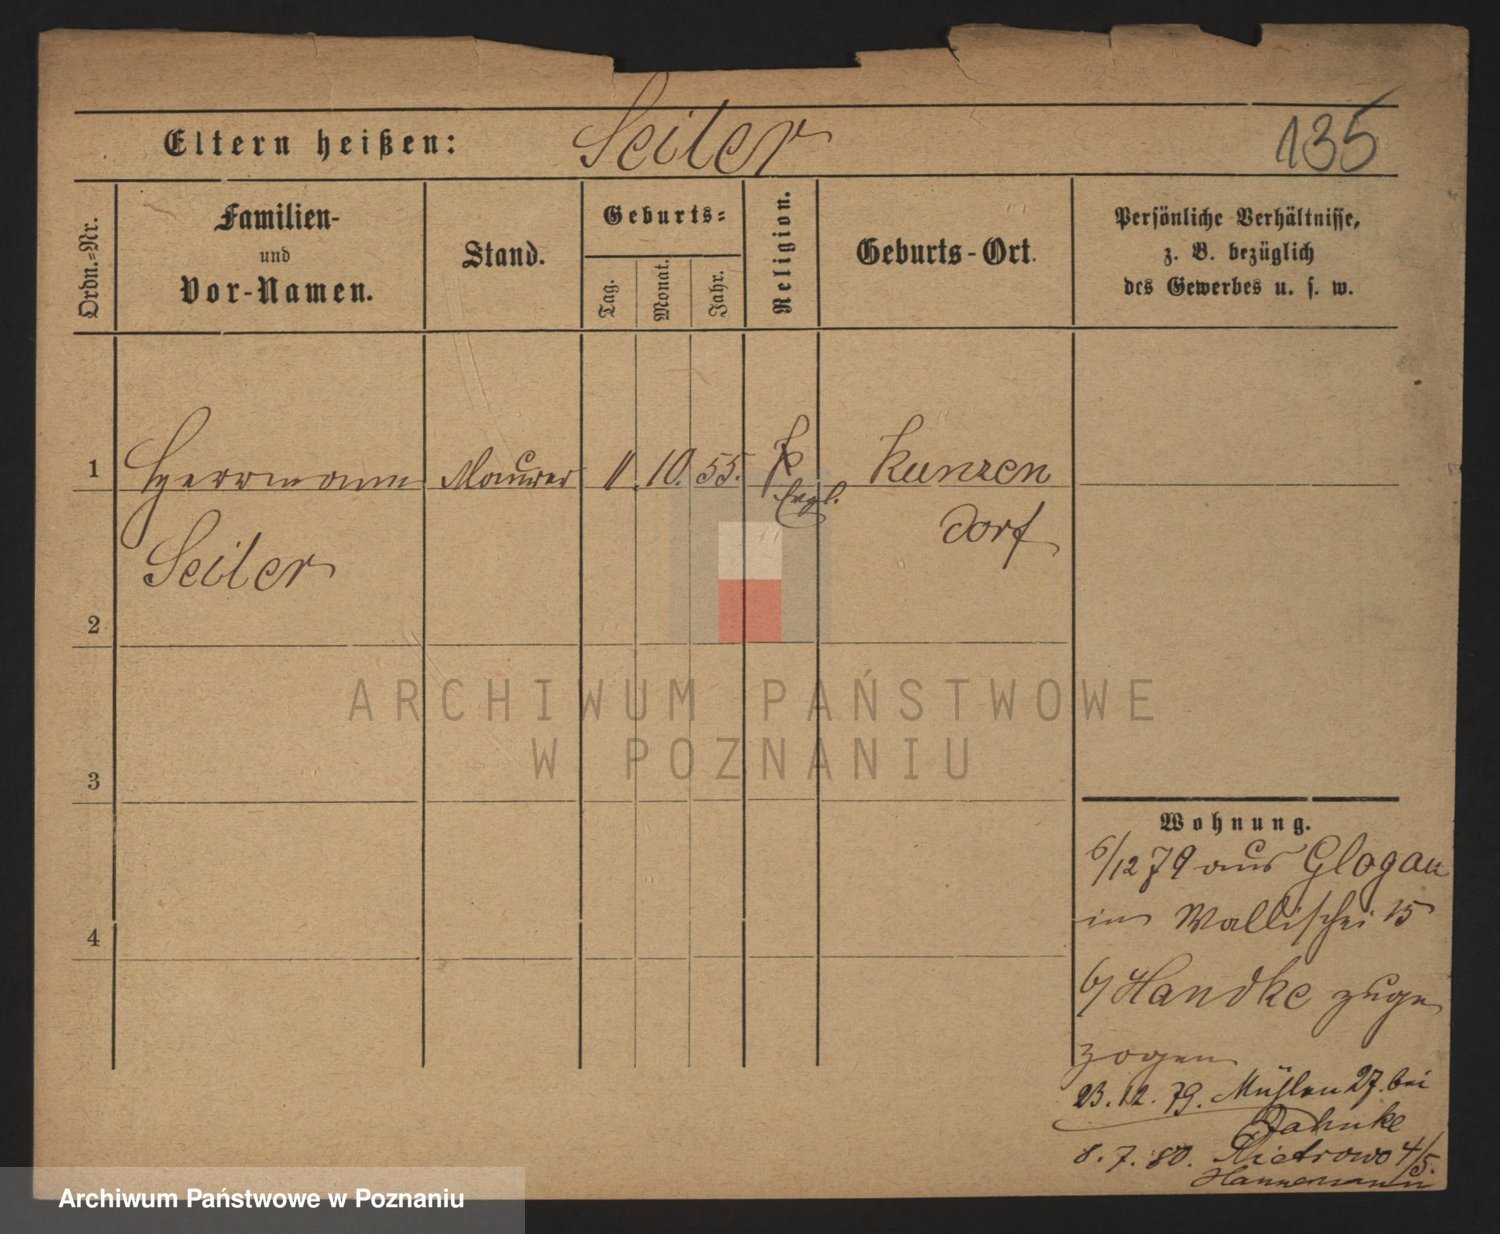 Eltern heißen: Seiler 135
Ordn.-Nr.
Familien-
und
Vor-Namen.
Stand.
Geburts-
Tag.
Monat.
Jahr.
Religion.
Geburts-Ort.
Persönliche Verhältnisse,
z. B. bezüglich
des Gewerbes u. s. w.
1 Herrmann Maurer 11. 10. 55. Kunzen
Evgl.
dorf
Seiler
2
ARCHIWUM PAŃSTWOWE
W POZNANIU
3
4
Wohnung.
6/12 79 aus Glogau
in Wallischei 15
b/ Handke zuge
zogen
23.12.79. Mühlen 27. bei
Jahnke
8.7.80. Pietrowo 4/5.
Hannemann
Archiwum Państwowe w Poznaniu